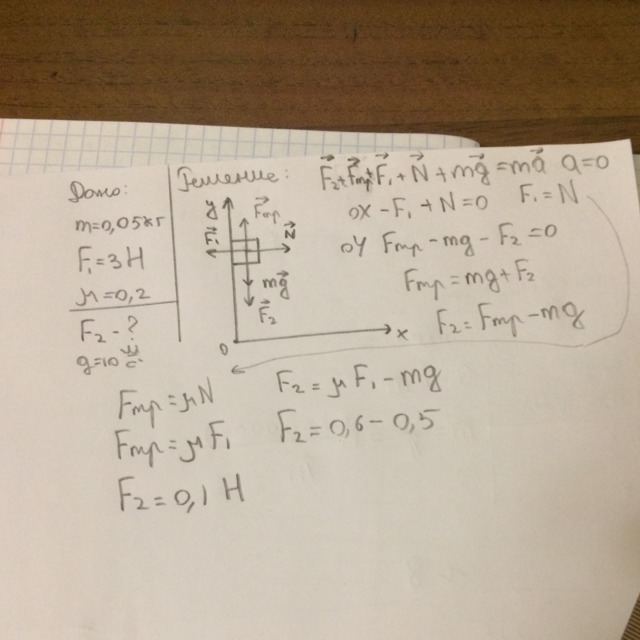 Дано:
m=0,05кг
F₁=3Н
μ=0,2
F₂-?
g=10 м/с²
Решение:
F⃗₂+F⃗тр+F⃗₁+N⃗+mg⃗=ma⃗ a=0
ox -F₁+N=0 F₁=N
oy Fтр-mg-F₂=0
Fтр=mg+F₂
F₂=Fтр-mg
y
F⃗тр
F⃗₁
N⃗
mg⃗
F⃗₂
0
x
Fтр=μN
Fтр=μF₁
F₂=0,1 Н
F₂=μF₁-mg
F₂=0,6-0,5